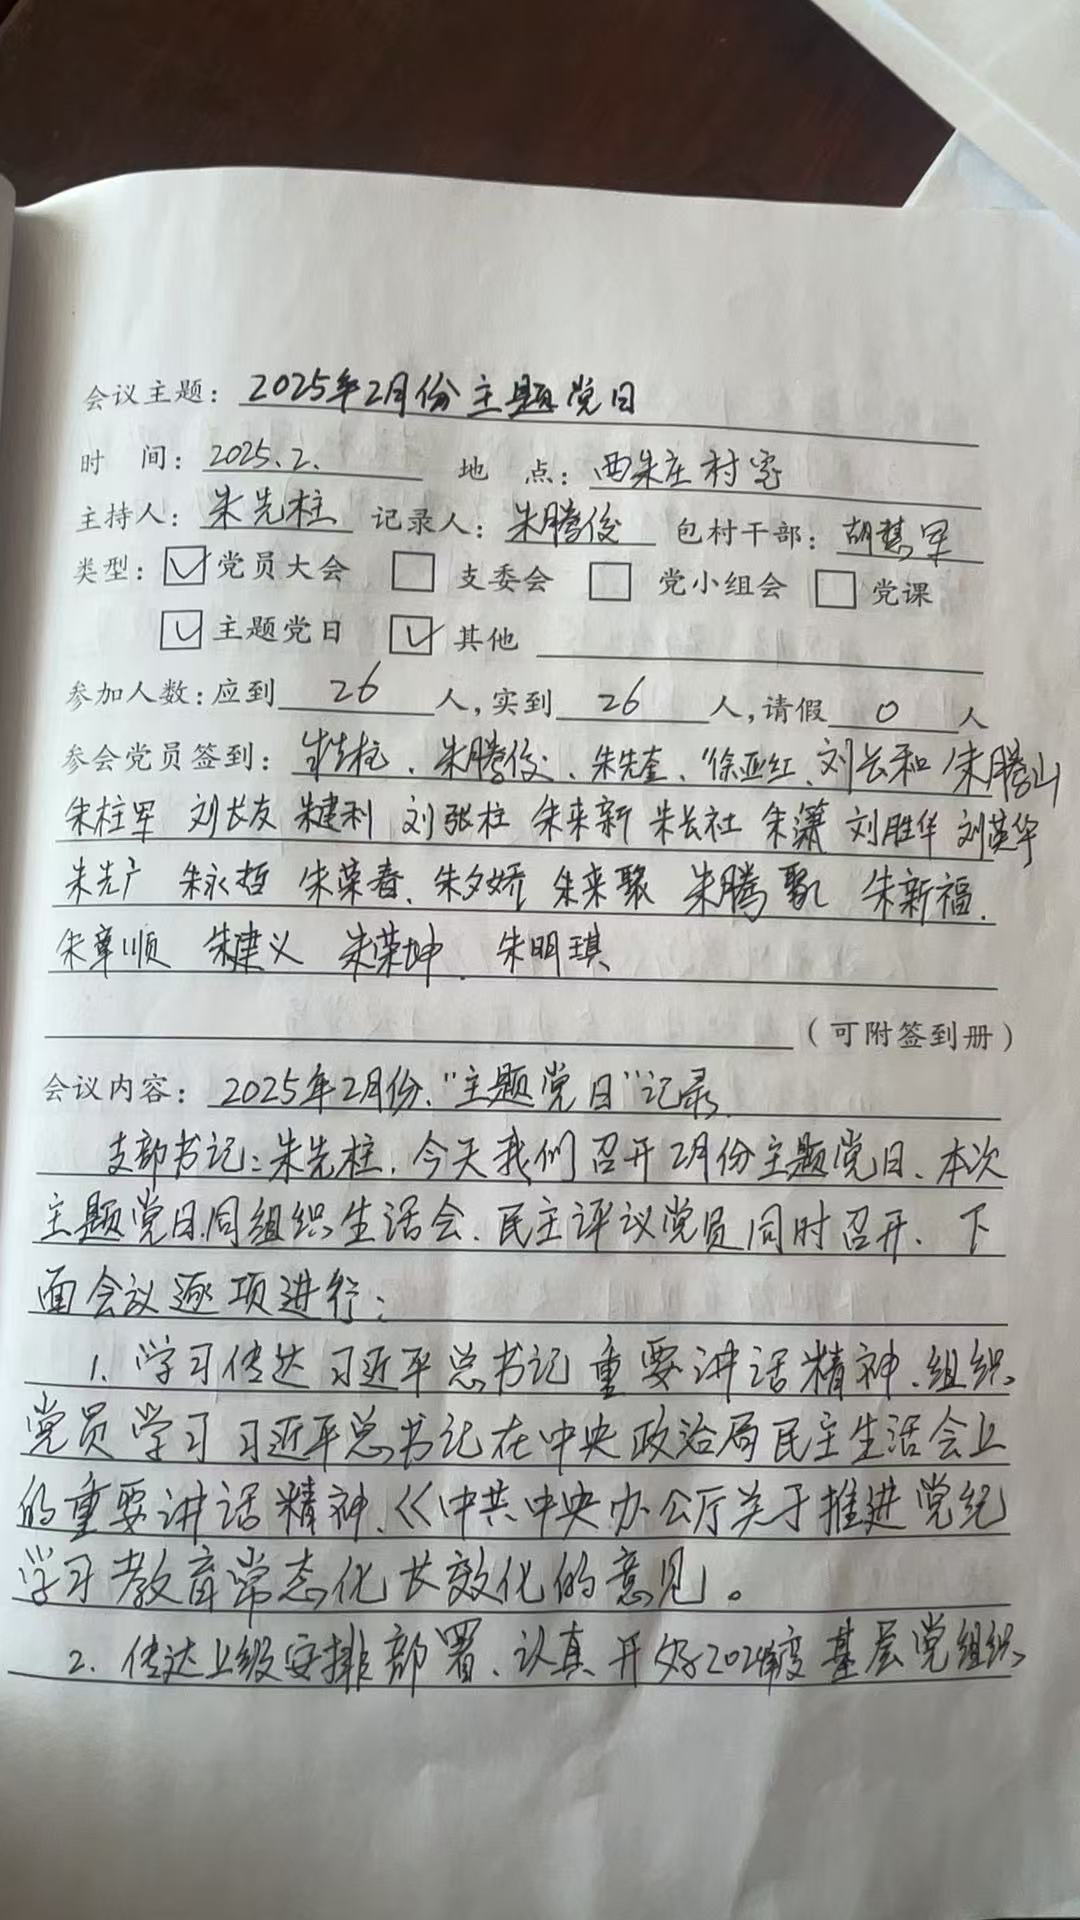 会议主题：2025年2月份主题党日
时 间：2025.2. 地 点：西朱庄村室
主持人：朱先柱 记录人：朱腾俊 包村干部：胡慧军
类型：☑党员大会 □支委会 □党小组会 □党课
☑主题党日 ☑其他
参加人数：应到 26 人，实到 26 人，请假 0 人
参会党员签到：朱先柱、朱腾俊、朱先奎、徐亚红、刘长和 朱腾山
朱柱军 刘长友 朱建利 刘张柱 朱来新 朱长社 朱潇 刘胜华 刘英华
朱先广 朱永哲 朱荣春、朱夕娇 朱来聚 朱腾聚 朱新福.
朱章顺 朱建义 朱荣坤. 朱明琪
（可附签到册）
会议内容：2025年2月份、"主题党日"记录.
支部书记：朱先柱，今天我们召开2月份主题党日、本次
主题党日同组织生活会、民主评议党员同时召开、下
面会议逐项进行：
1、学习传达习近平总书记重要讲话精神、组织
党员学习习近平总书记在中央政治局民主生活会上
的重要讲话精神、《中共中央办公厅关于推进党纪
学习教育常态化长效化的意见》。
2、传达上级安排部署、认真开好2024年度基层党组织